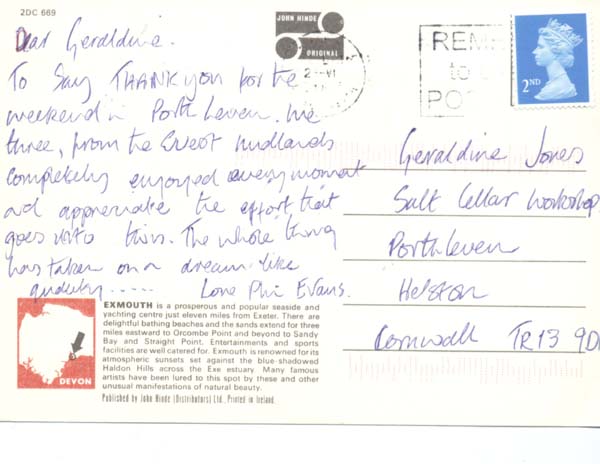 2DC 669
JOHN HINDE
ORIGINAL
2 - VI
REME
to U
PO
2ND
Dear Geraldine.
To Say THANK you for the
weekend in Porthleven. We
three, from the West midlands
completely enjoyed every moment
and appreciate the effort that
goes into this. The whole thing
has taken on a dream-like
quality..... Love Phil Evans.
Geraldine Jones
Salt Cellar Workshop
Porthleven
Helston
Cornwall TR13 9D
DEVON
EXMOUTH is a prosperous and popular seaside and
yachting centre just eleven miles from Exeter. There are
delightful bathing beaches and the sands extend for three
miles eastward to Orcombe Point and beyond to Sandy
Bay and Straight Point. Entertainments and sports
facilities are well catered for. Exmouth is renowned for its
atmospheric sunsets set against the blue-shadowed
Haldon Hills across the Exe estuary. Many famous
artists have been lured to this spot by these and other
unusual manifestations of natural beauty.
Published by John Hinde (Distributors) Ltd., Printed in Ireland.